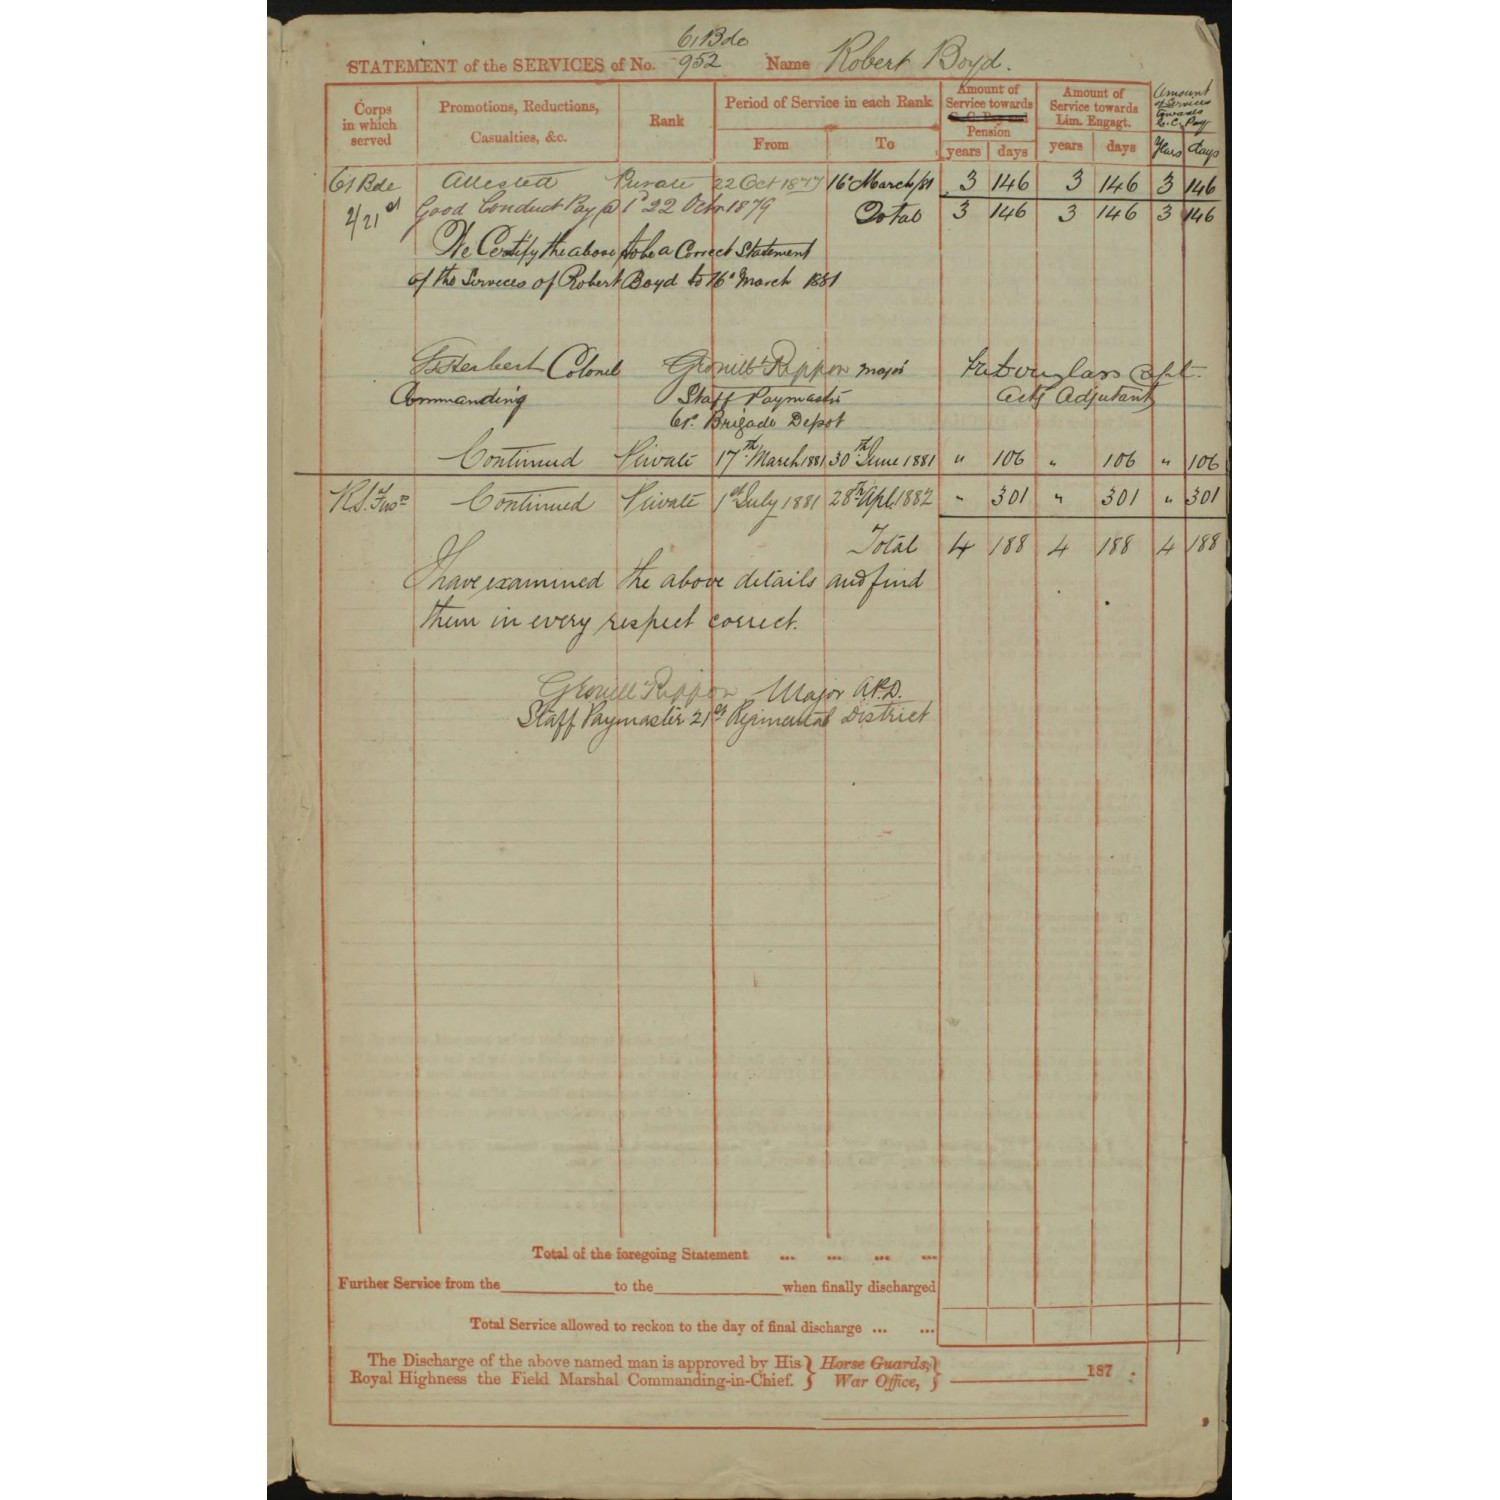 61 Bde
STATEMENT of the SERVICES of No. 952 Name Robert Boyd.
Corps in which served
Promotions, Reductions, Casualties, &c.
Rank
Period of Service in each Rank
From To
Amount of Service towards G. C. Pay and Pension
years days
Amount of Service towards Lim. Engagt.
years days
Amount of Services towards G. C. Pay
Years days
61 Bde Attested Private 22 Oct 1877 16th March/81 3 146 3 146 3 146
2/21st Good Conduct Pay @ 1d 22 Octr 1879 Total 3 146 3 146 3 146
We Certify the above to be a Correct Statement
of the Services of Robert Boyd to 16th March 1881
Herbert Colonel Rippon Major Douglass Capt.
Commanding Staff Paymaster Actg Adjutant
61st Brigade Depot
Continued Private 17th March 1881 30th June 1881 " 106 " 106 " 106
R.S. Fusrs Continued Private 1st July 1881 28th Apl. 1882 " 301 " 301 " 301
Total 4 188 4 188 4 188
I have examined the above details and find
them in every respect correct.
Rippon Major A.P.D.
Staff Paymaster 21st Regimental District
Total of the foregoing Statement ... ... ... ...
Further Service from the to the when finally discharged
Total Service allowed to reckon to the day of final discharge ... ...
The Discharge of the above named man is approved by His } Horse Guards, }
Royal Highness the Field Marshal Commanding-in-Chief. } War Office, } 187 .